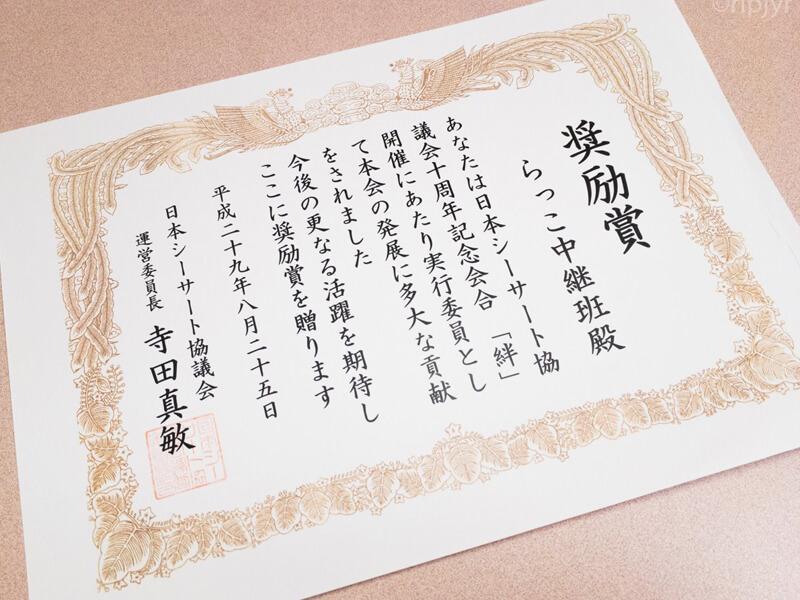 奨励賞
らっこ中継班殿
あなたは日本シーサート協
議会十周年記念会合「絆」
開催にあたり実行委員とし
て本会の発展に多大な貢献
をされました
今後の更なる活躍を期待し
ここに奨励賞を贈ります
平成二十九年八月二十五日
日本シーサート協議会
運営委員長 寺田真敏